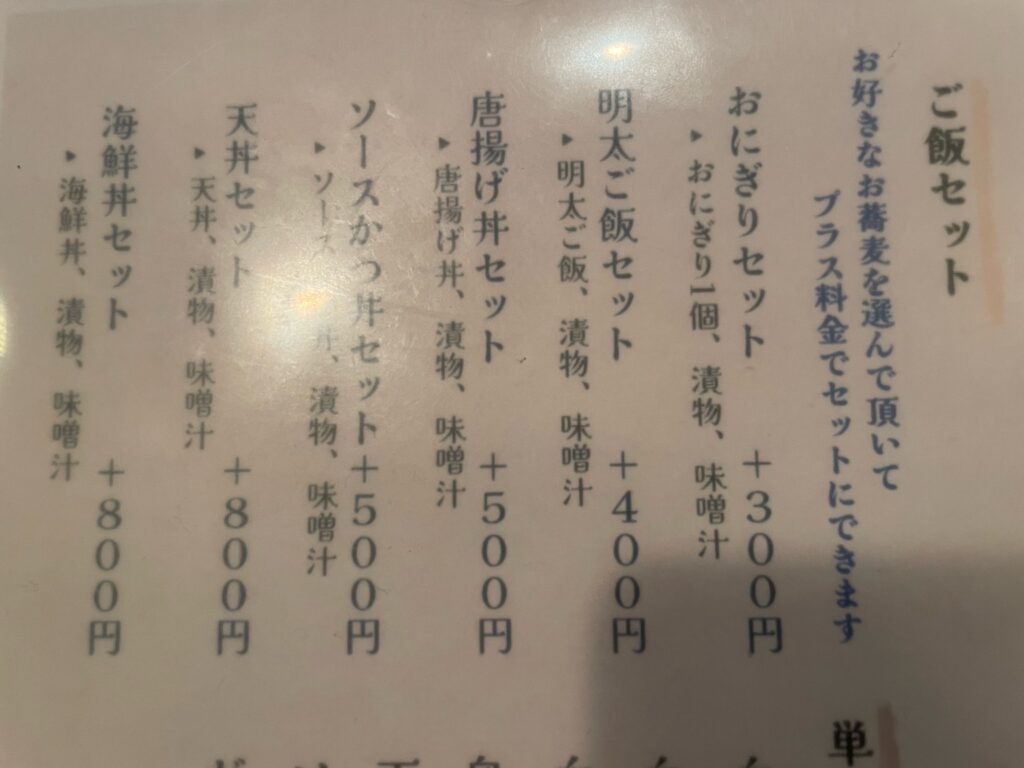 ご飯セット
お好きなお蕎麦を選んで頂いて
プラス料金でセットにできます
おにぎりセット ＋３００円
▸おにぎり1個、漬物、味噌汁
明太ご飯セット ＋４００円
▸明太ご飯、漬物、味噌汁
唐揚げ丼セット ＋５００円
▸唐揚げ丼、漬物、味噌汁
ソースかつ丼セット＋５００円
▸ソース 丼、漬物、味噌汁
天丼セット ＋８００円
▸天丼、漬物、味噌汁
海鮮丼セット ＋８００円
▸海鮮丼、漬物、味噌汁
単